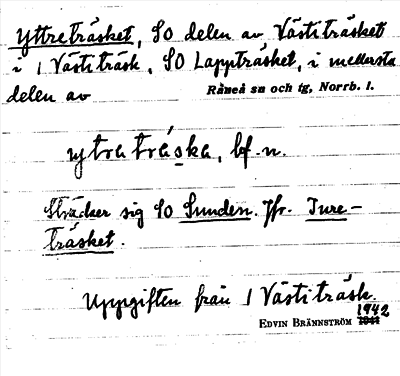 Yttreträsket, SO delen av Västiträsket
i 1 Västiträsk, SO Lappträsket, i mellersta
delen av Råneå sn och tg, Norrb. l.
ytra träska, bf. n.
Sträcker sig SO Sunden. Jfr. Inre-
träsket.
Uppgiften från 1 Västiträsk.
EDVIN BRÄNNSTRÖM 1942
1941